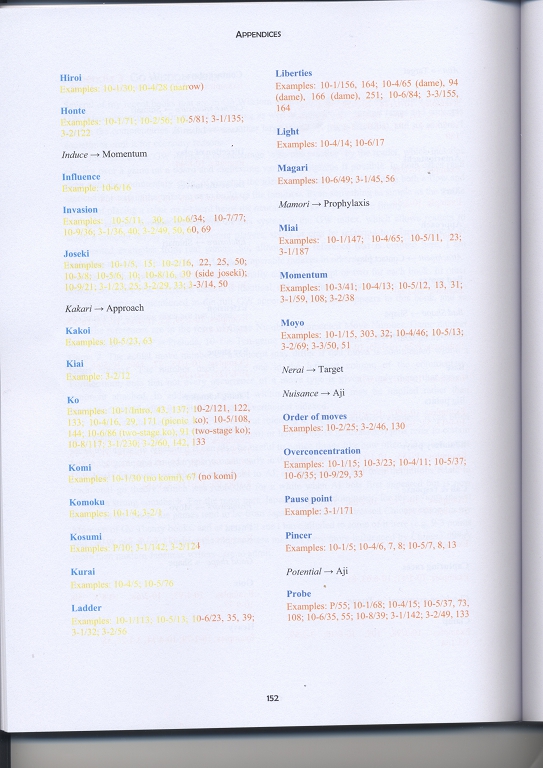 APPENDICES
Hiroi
Examples: 10-1/50; 10-4/28 (narrow)
Honte
Examples: 10-1/71; 10-2/50; 10-5/81; 3-1/135;
3-2/122
Induce → Momentum
Influence
Example: 10-6/16
Invasion
Examples: 10-5/11, 30; 10-6/34; 10-7/77;
10-9/36; 3-1/36, 40; 3-2/40, 50, 60, 69
Joseki
Examples: 10-1/5, 13; 10-2/16, 22, 25, 50;
10-3/8; 10-5/6, 10; 10-8/16, 19 (side joseki);
10-9/21; 3-1/23, 25; 3-2/29, 33; 3-3/14, 50
Kakari → Approach
Kakoi
Examples: 10-5/23, 63
Kiai
Example: 3-2/12
Ko
Examples: 10-1/Intro, 43, 137; 10-2/121, 122,
133; 10-4/16, 29, 171 (picnic ko); 10-5/108,
144; 10-6/86 (two-stage ko), 91 (two-stage ko);
10-8/117; 3-1/230; 3-2/60, 142, 133
Komi
Examples: 10-1/30 (no komi), 67 (no komi)
Komoku
Examples: 10-1/4; 3-2/1
Kosumi
Examples: P/10; 3-1/142; 3-2/124
Kurai
Examples: 10-4/5; 10-5/76
Ladder
Examples: 10-1/113; 10-5/13; 10-6/23, 35, 39;
3-1/32; 3-2/59
Liberties
Examples: 10-1/156, 164; 10-4/65 (dame), 94
(dame), 166 (dame), 251; 10-6/84; 3-3/155,
164
Light
Examples: 10-4/14; 10-6/17
Magari
Examples: 10-6/49; 3-1/45, 56
Mamori → Prophylaxis
Miai
Examples: 10-1/147; 10-4/65; 10-5/11, 23;
3-1/187
Momentum
Examples: 10-3/41; 10-4/13; 10-5/12, 13, 31;
3-1/59, 108; 3-2/38
Moyo
Examples: 10-1/15, 303, 32; 10-4/46; 10-5/13;
3-2/69; 3-3/50, 51
Nerai → Target
Nuisance → Aji
Order of moves
Examples: 10-2/25; 3-2/46, 130
Overconcentration
Examples: 10-1/15; 10-3/23; 10-4/11; 10-5/37;
10-6/35; 10-9/29, 33
Pause point
Example: 3-1/171
Pincer
Examples: 10-1/5; 10-4/6, 7, 8; 10-5/7, 8, 13
Potential → Aji
Probe
Examples: P/55; 10-1/68; 10-4/15; 10-5/37, 73,
108; 10-6/35, 55; 10-8/39; 3-1/142; 3-2/49, 133
152